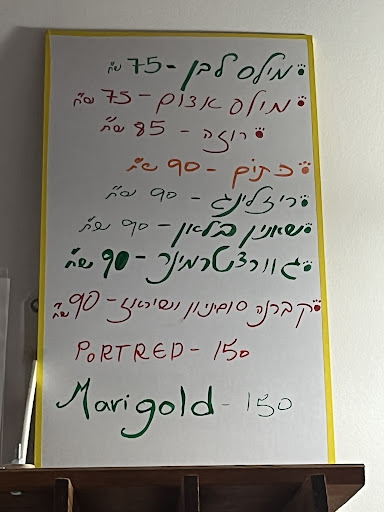 מילס לבן - 75 ש״ח
מילס אדום - 75 ש״ח
רוזה - 85 ש״ח
כתום - 90 ש״ח
ריזלינג - 90 ש״ח
שאנין בלאן - 90 ש״ח
גוורצטרמינר - 90 ש״ח
קברנה סוביניון ושיראז - 90 ש״ח
PORTRED - 150
Marigold - 150